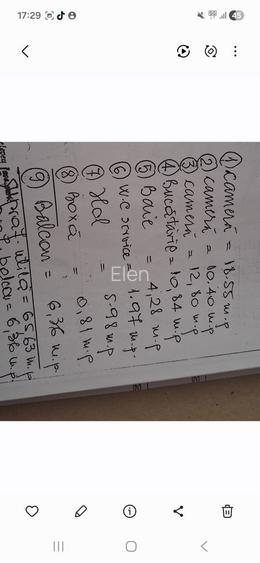 17:29
45
① camera = 18.55 m.p
② camera = 10.40 m.p
③ camera = 12,80 m.p
④ Bucătărie = 10,84 m.p
⑤ Baie = 4,28 m.p
⑥ W.C serviciu = 1.97 m.p.
⑦ Hol = 5.98 m.p
⑧ Boxă = 0,81 m.p
⑨ Balcon = 6,36 m.p
utilă = 65,63 m.p
balcon = 6,36 m.p.
Elen